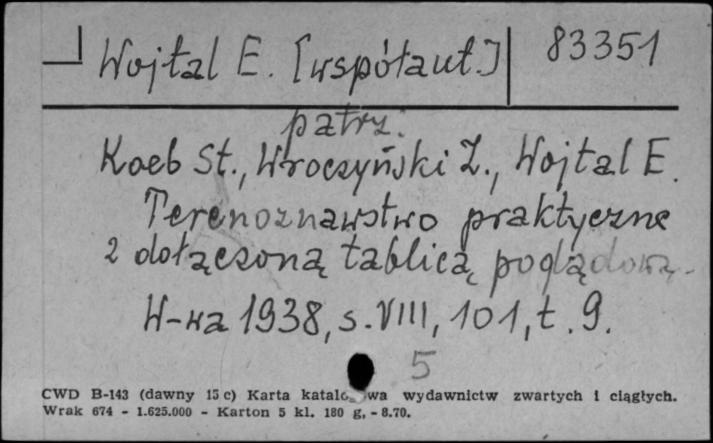 Wojtal E. [współaut.] 83351
patrz:
Kaeb St., Wroczyński Z., Wojtal E.
Terenoznawstwo praktyczne
z dołączoną tablicą poglądową.
W-wa 1938, s. VIII, 101, t. 9.
5
CWD B-143 (dawny 15 c) Karta katalogowa wydawnictw zwartych i ciągłych.
Wrak 674 - 1.625.000 - Karton 5 kl. 180 g. - 8.70.